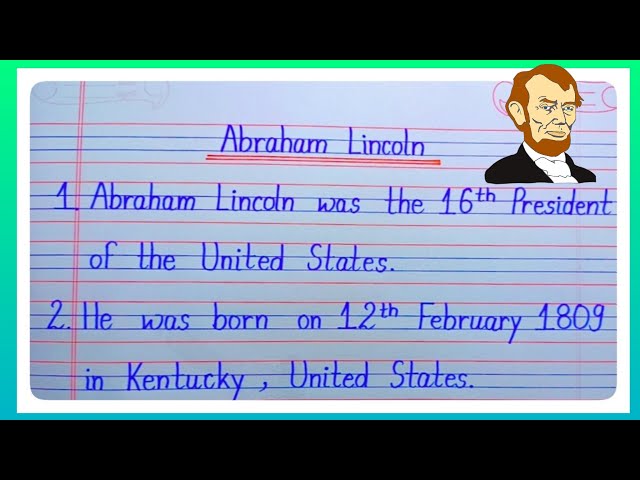 Abraham Lincoln
1. Abraham Lincoln was the 16th President
of the United States.
2. He was born on 12th February 1809
in Kentucky, United States.